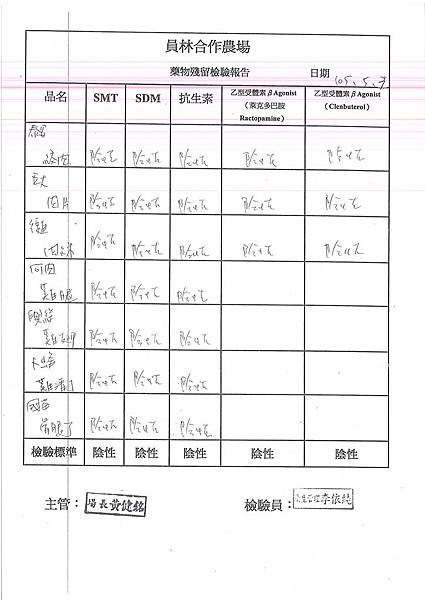 員林合作農場
藥物殘留檢驗報告 日期 105.5.3
品名 SMT SDM 抗生素 乙型受體素βAgonist（萊克多巴胺 Ractopamine） 乙型受體素βAgonist（Clenbuterol）
陰性 陰性 陰性 陰性 陰性
肉片 陰性 陰性 陰性 陰性 陰性
陰性 陰性 陰性 陰性 陰性
雞腿 陰性 陰性 陰性
陰性 陰性 陰性
陰性 陰性 陰性
陰性 陰性 陰性
檢驗標準 陰性 陰性 陰性 陰性 陰性
主管： 場長黃健銘 檢驗員： 李依純